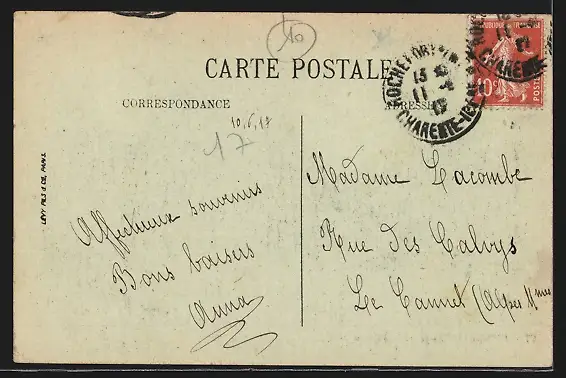 10
CARTE POSTALE
CORRESPONDANCE
ADRESSE
10.6.17
17
ROCHEFORT
CHARENTE
10c
LEVY FILS & CIE, PARIS
Affectueux souvenirs
Bons baisers
Anna
Madame Lacombe
Rue des Calvys
Le Cannet (Alpes Mmes